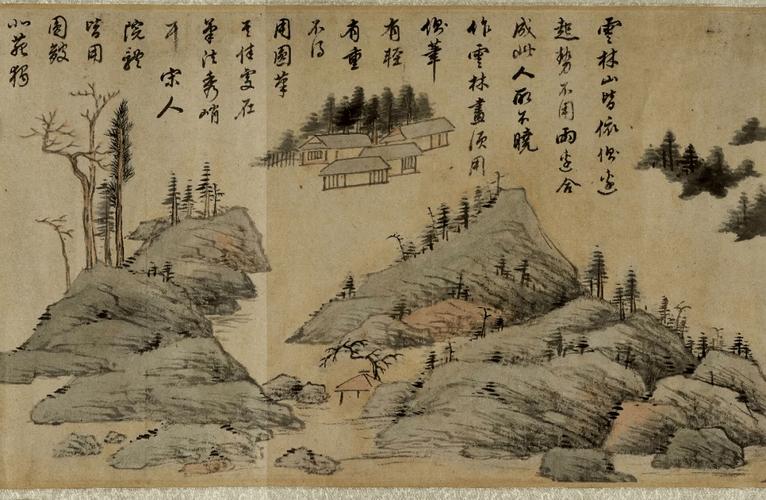 雲林山皆依側邊
起勢不用兩邊合
成此人所不曉
作雲林畫須用
側筆
有輕
有重
不得
用圓筆
其佳處在
筆法秀峭
耳宋人
院體
皆用
圓皴
北苑獨